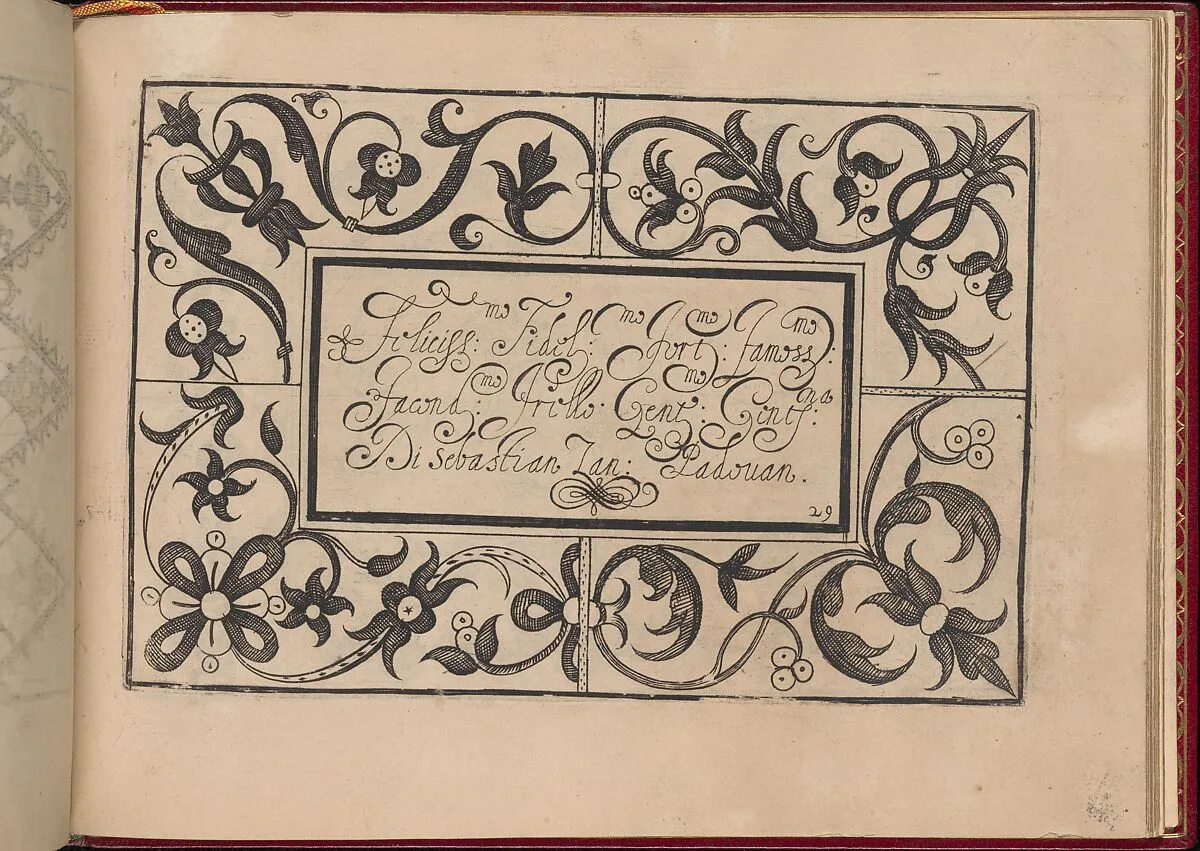 Feliciss:mo Fidel:mo Fort:mo Famoss:mo
Facond:mo Frillo Gent:mo Gentf:na
Di Sebastian Zan: Padouan.
29